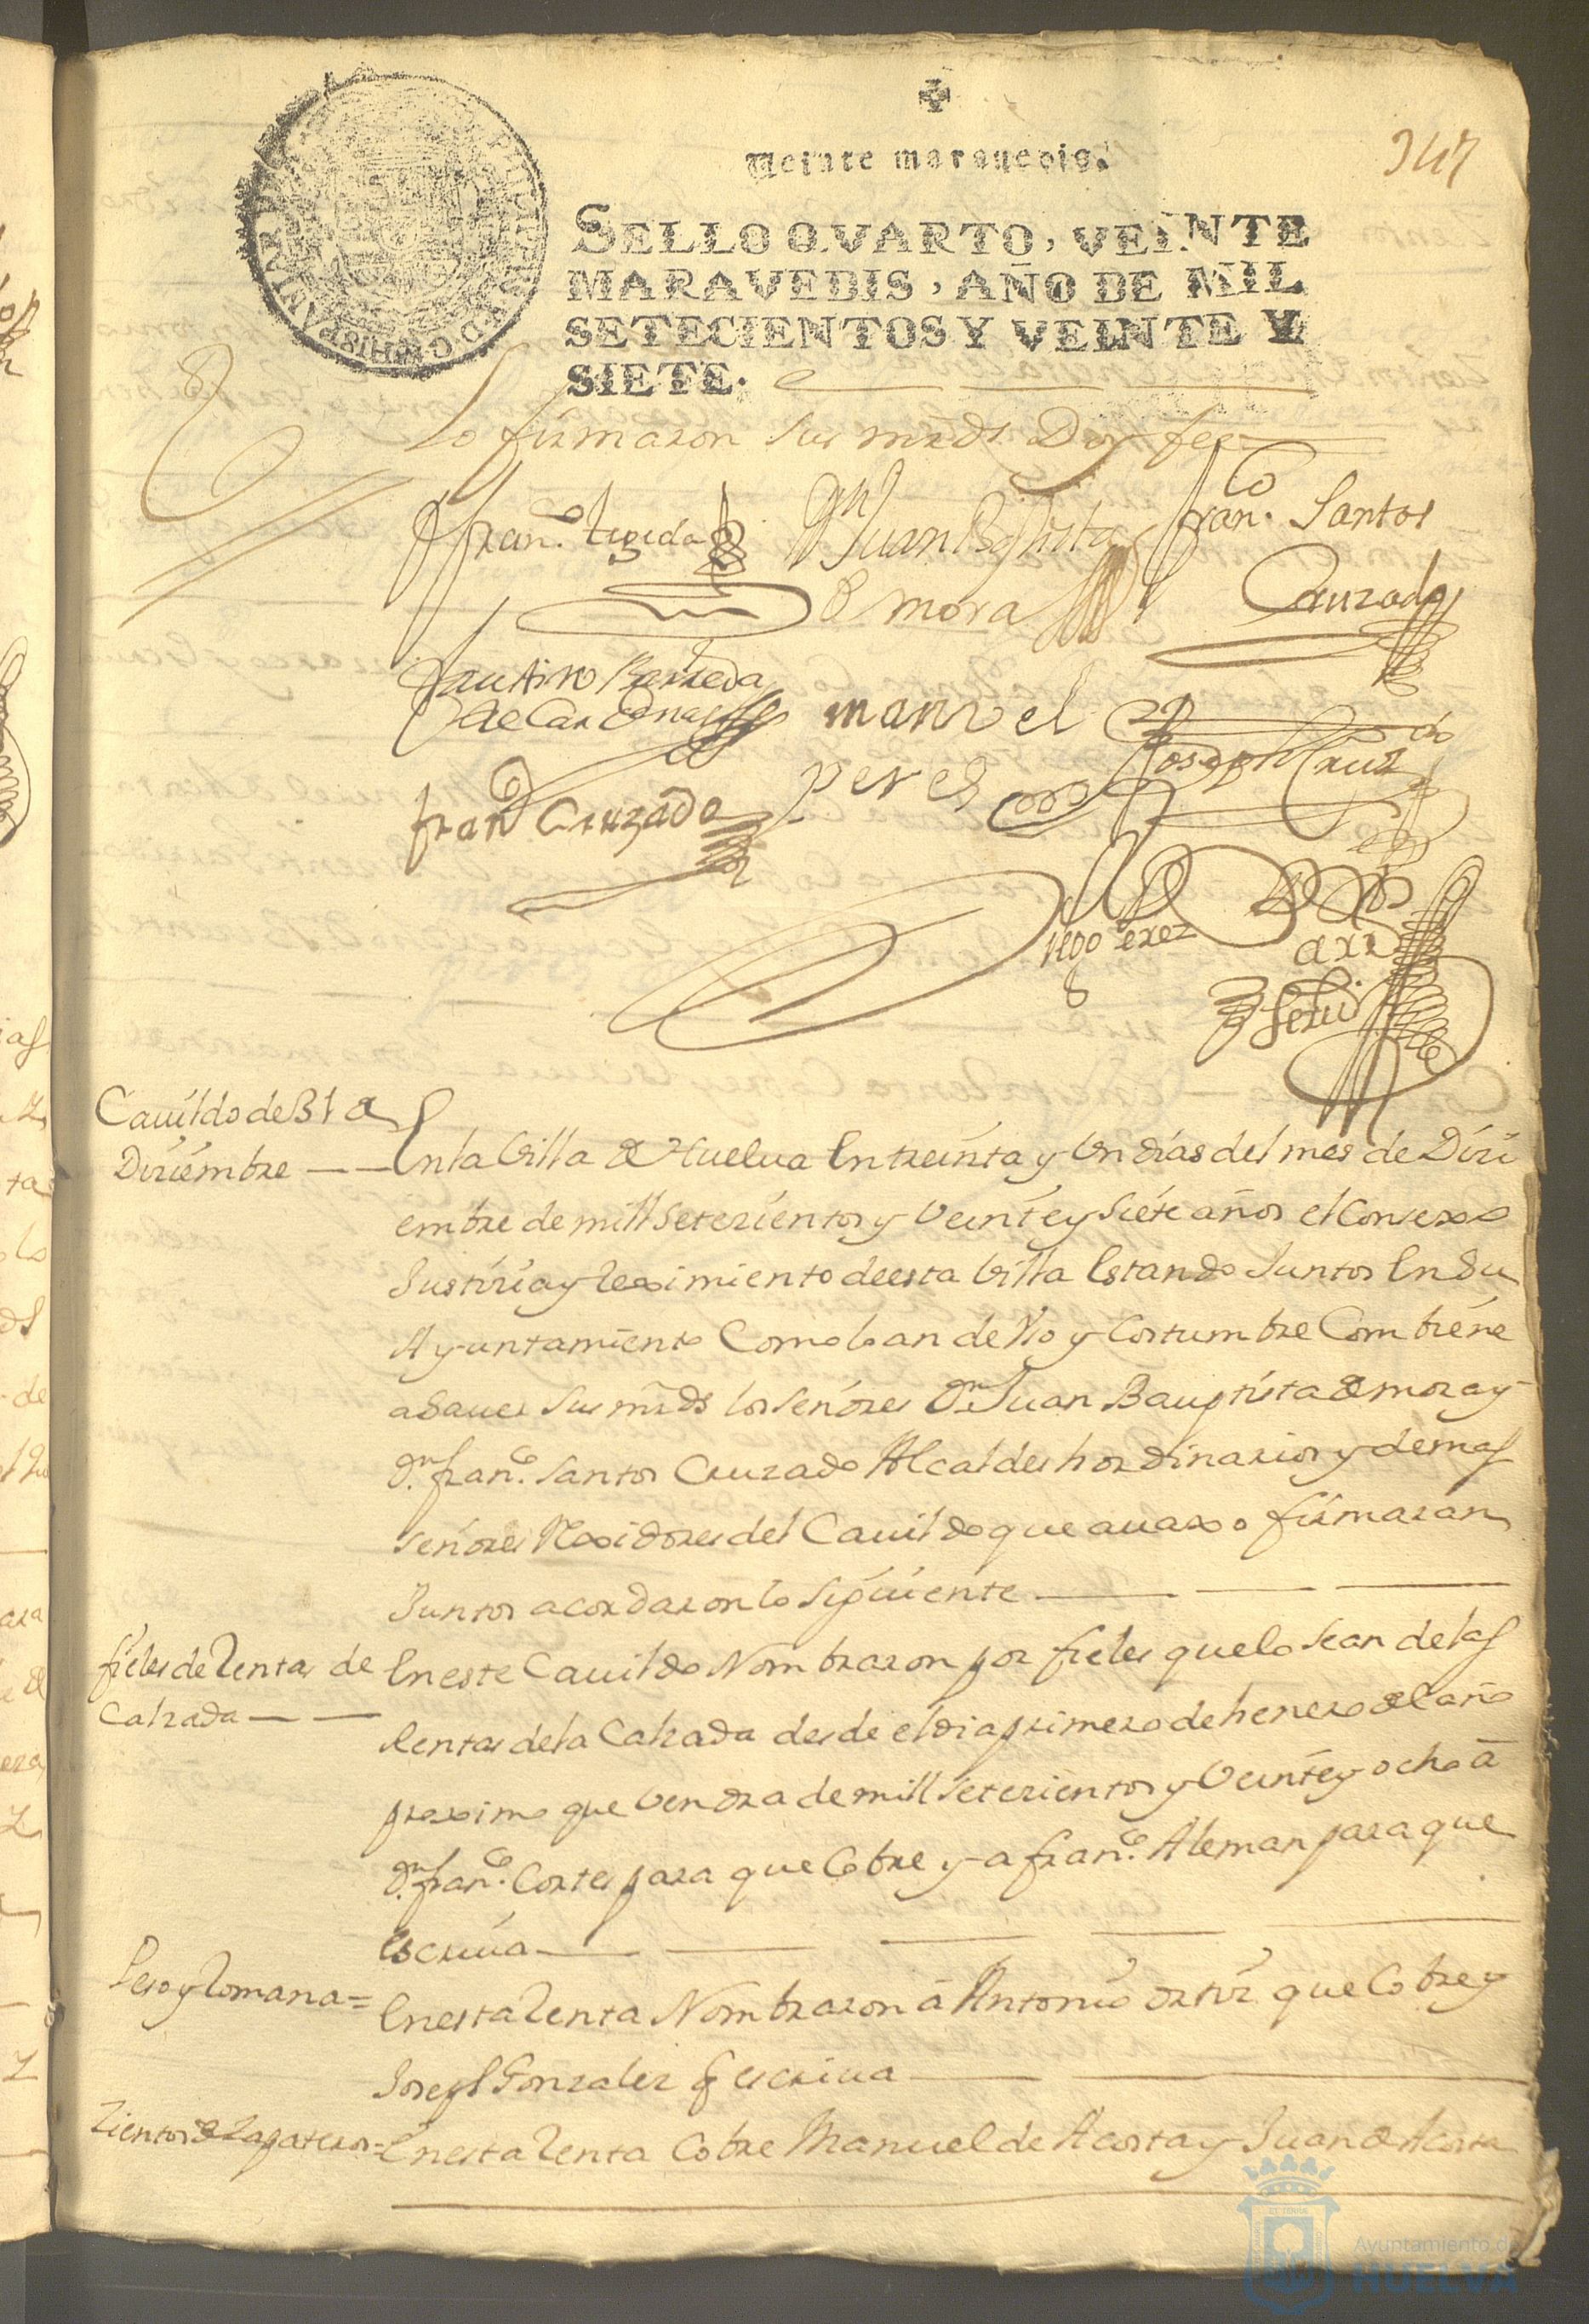 Veinte maravedis.
347
SELLO QVARTO, VEINTE
MARAVEDIS, AÑO DE MIL
SETECIENTOS Y VEINTE Y
SIETE.
Lo firmaron sus mrds Doy fee
fran.co tegeda
Dn Juan Baptista
de mora
fran.co Santos
Cruzado
Faustino Barreda
de Cardenas
manuel
perez
Joseph Cruz
fran.co Cruzado
Diego Perez
Cauildo de 31 de
Diziembre
En la Villa de Huelua En treinta y Un dias del mes de Dizi
embre de mill Setezientos y Veinte y Siete años el Consexo
Justizia y Reximiento de esta Villa Estando Juntos En Su
Ayuntamiento Como lo an de Vso y Costumbre Combiene
a Sauer Sus mrds los Señores Dn Juan Bauptista de mora y
Dn fran.co Santos Cruzado Alcaldes hordinarios y demas
Señores Rexidores del Cauildo que auaxo firmaran
Juntos acordaron lo Siguiente
fieles de Rentas de
Calzada
En este Cauildo Nombraron por fieles que lo Sean de las
Rentas de la Calzada desde el dia primero de henero del año
proximo que Vendra de mill Setezientos y Veinte y ocho â
Dn fran.co Cortes para que Cobre y a fran.co Aleman para que
Escriua
Peso y Romana =
En esta Renta Nombraron â Antonio Ortiz que Cobre y
Joseph Gonzalez q escriua
Zientos de Zapateros =
En esta Renta Cobre Manuel de Acosta y Juan de Acosta
Ayuntamiento de
HUELVA